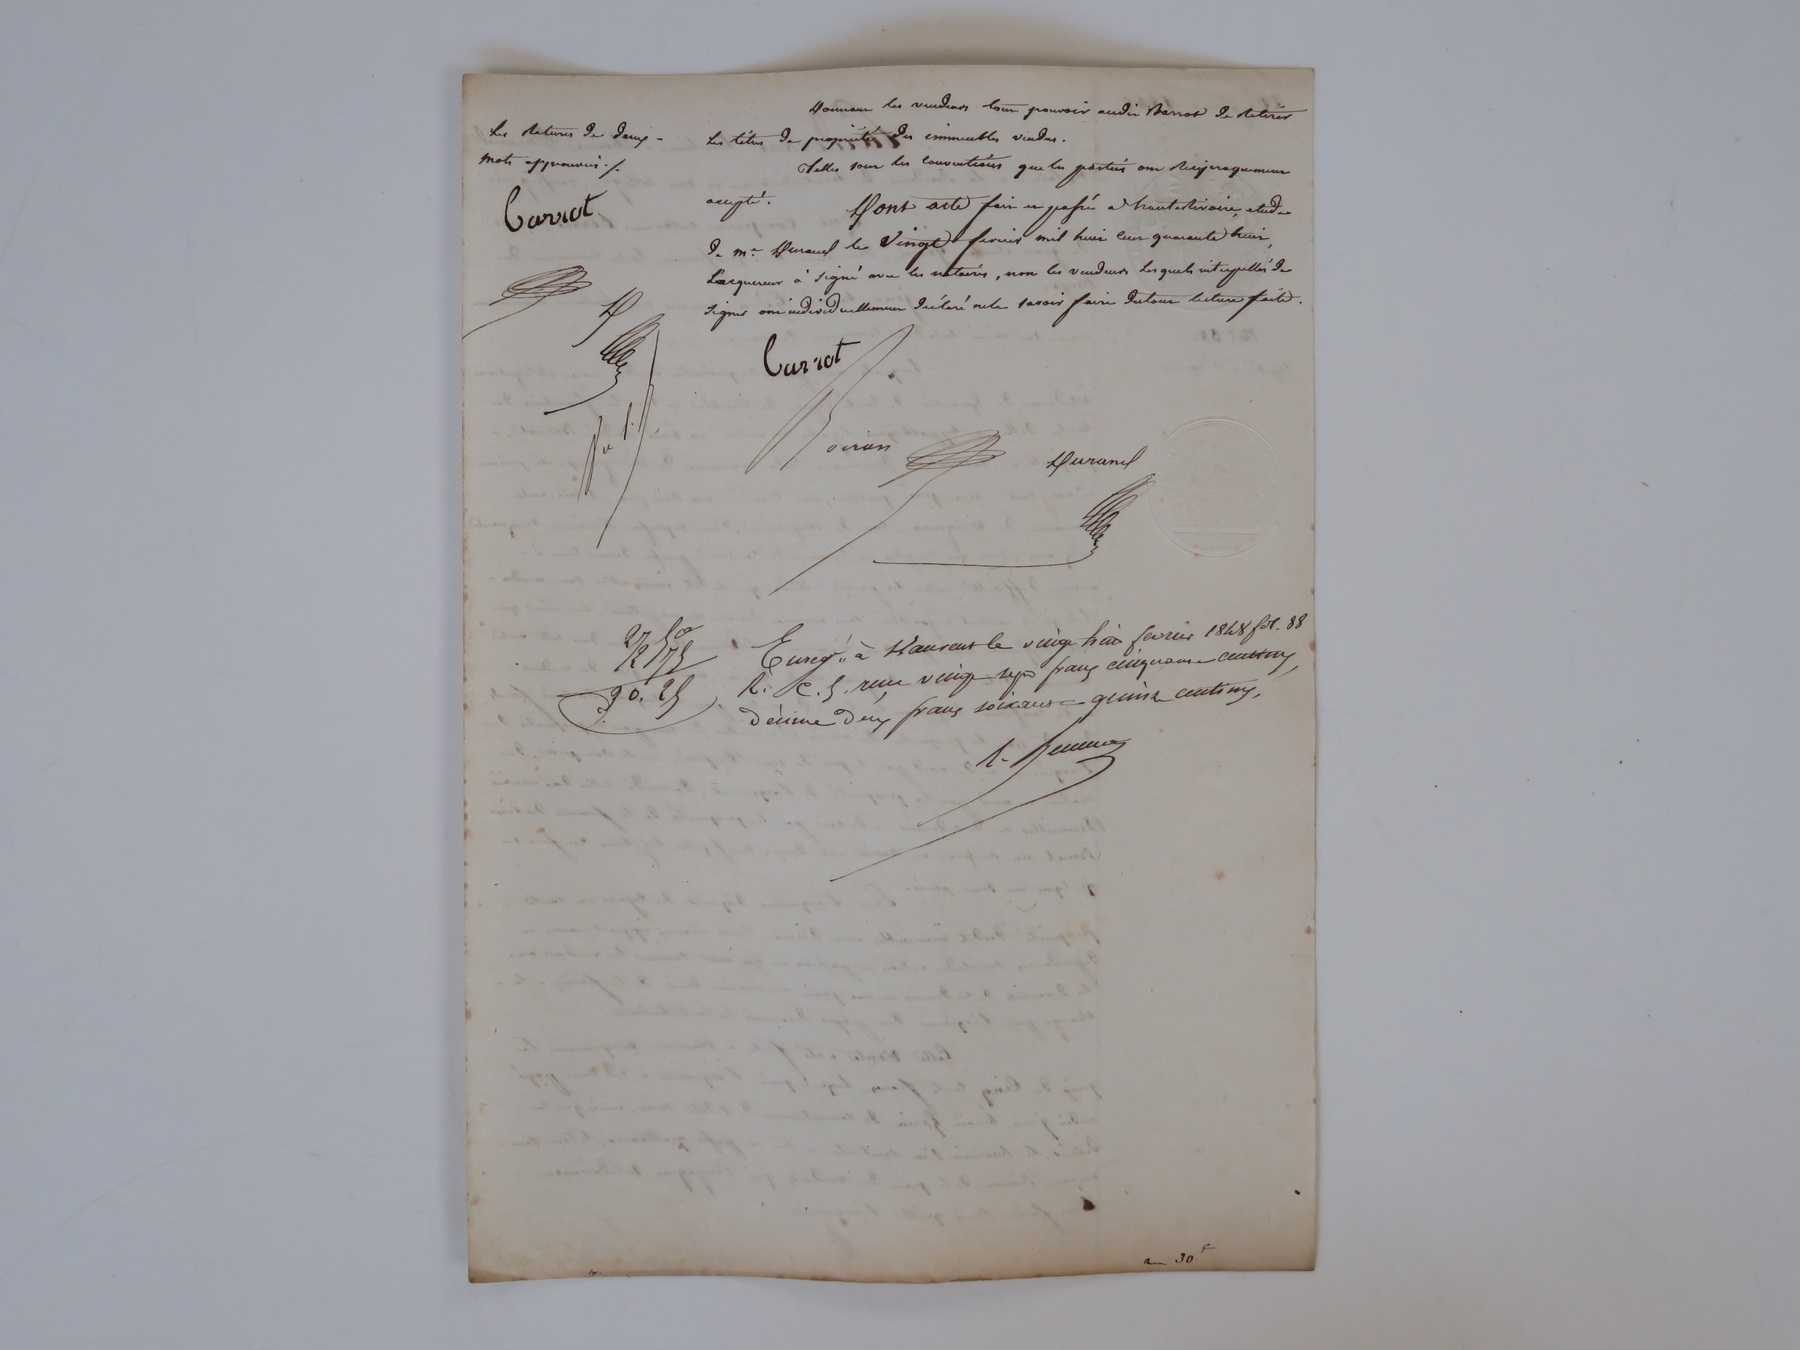 Donnent les vendeurs tous pouvoir audit Barrot de Retirer
les titres de propriété des immeubles vendus.
Telles sont les conventions que les parties ont Réciproquement
accepté.
Dont acte fait et passé a hauterivoire, étude
de me Durand le Vingt fevrier mil huit cent quarante huit,
L'acquereur à signé avec les notaires, non les vendeurs Lesquels interpellés de
signer ont individuellement déclaré ne le savoir faire du tout lecture faite.
les Ratures de deux
mots approuvés ./.
Carrot
D
Carrot
Boiron
Durand
27.50
2.75
30.25
Enregé à St Laurent le vingt huit fevrier 1848 fol. 88
R. C. 5. reçu vingt sept francs cinquante centimes,
décime deux francs soixante quinze centimes.
30 f